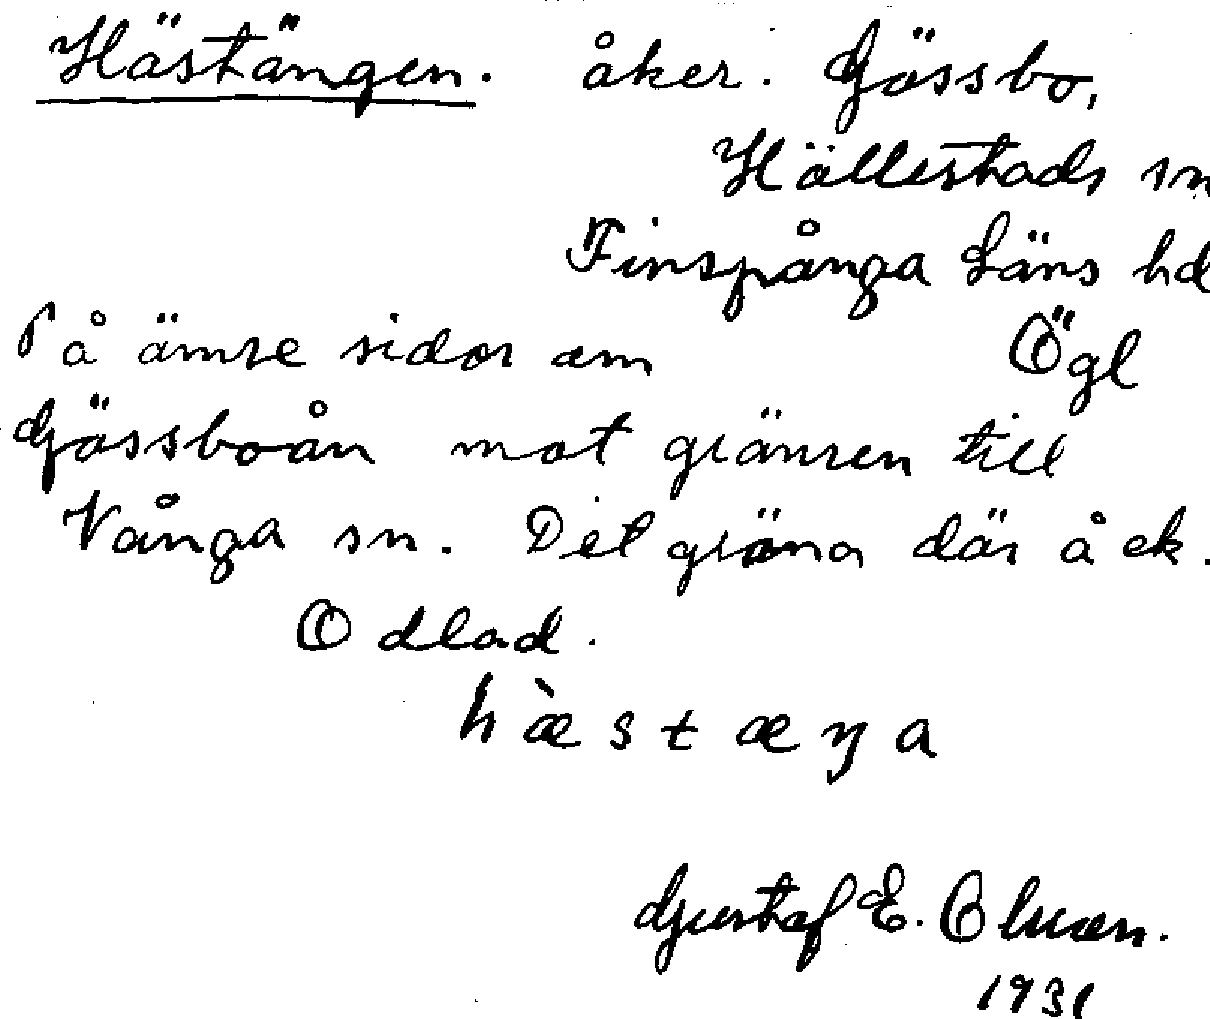 Hästängen. åker. Gässbo,
Hällestads sn
Finspånga Läns hd
På ämse sidor om Ögl
Gässboån mot gränsen till
Vånga sn. Det gräna där å ek.
Odlad.
hæ̀stæŋa
Gustaf E. Olsson.
1931